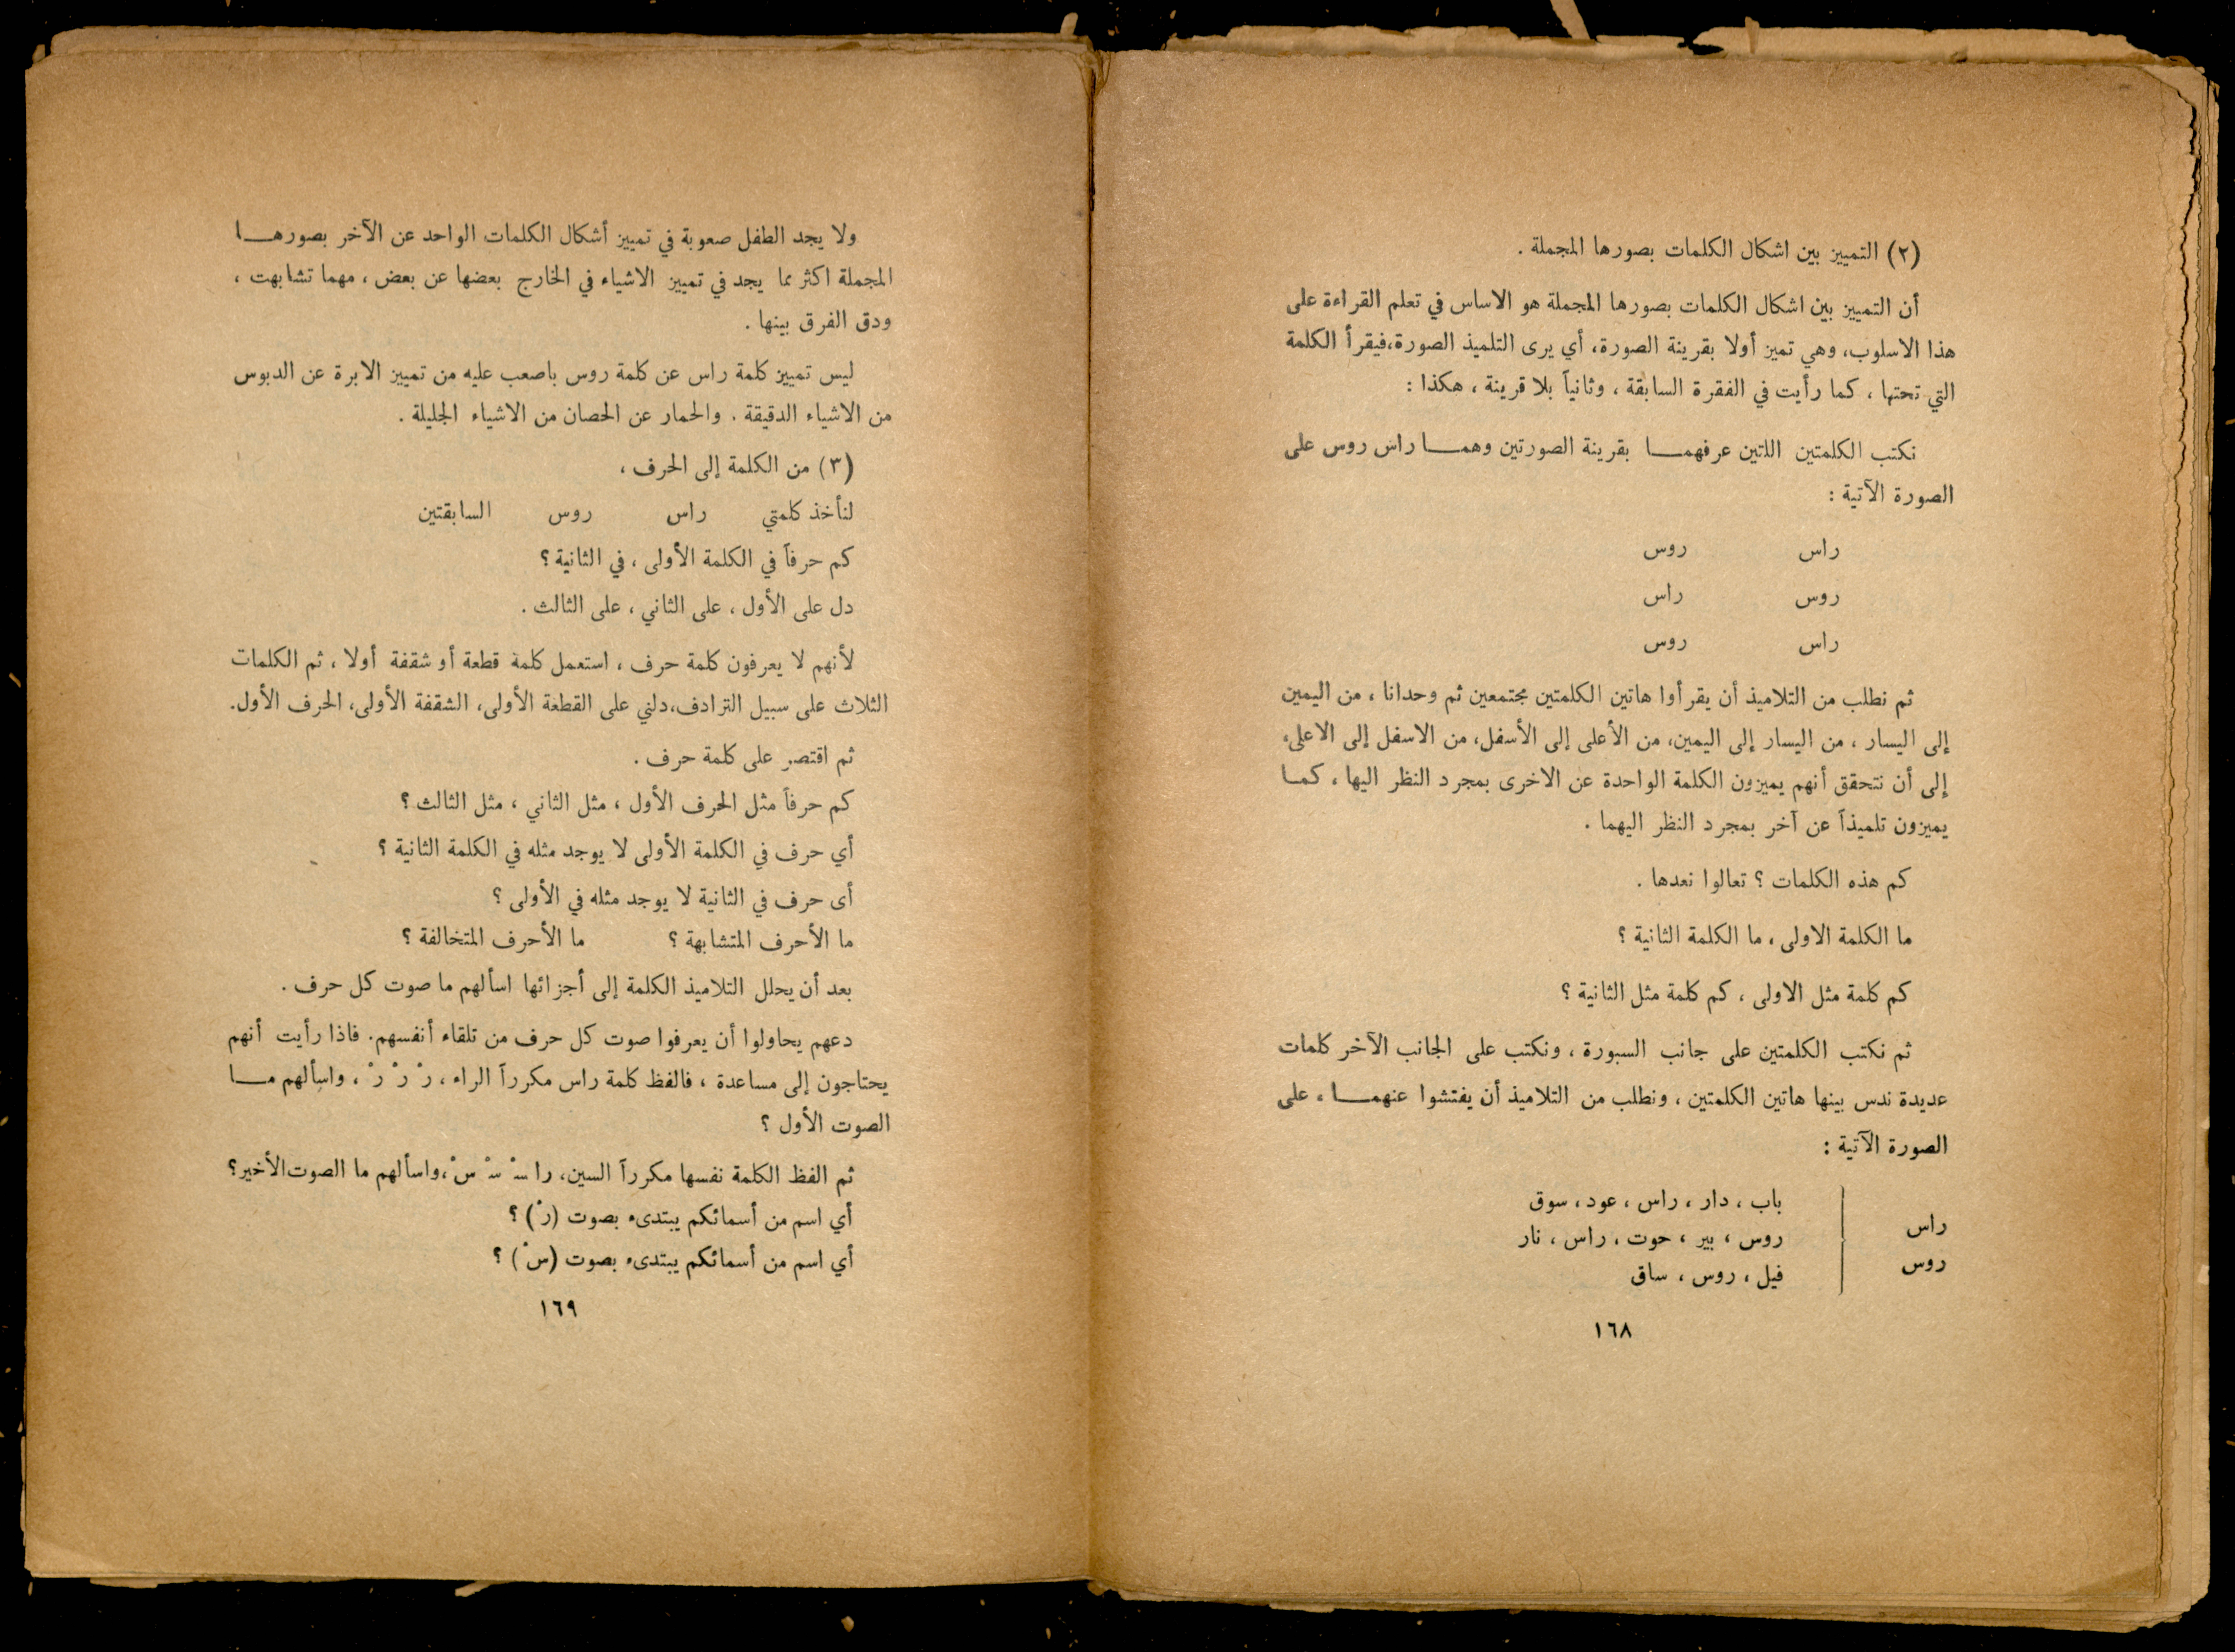 (٢) التمييز بين اشكال الكلمات بصورها المجملة .
أن التمييز بين اشكال الكلمات بصورها المجملة هو الاساس في تعلم القراءة على
هذا الاسلوب، وهي تميز أولا بقرينة الصورة، أي يرى التلميذ الصورة،فيقرأ الكلمة
التي تحتها ، كما رأيت في الفقرة السابقة ، وثانياً بلا قرينة ، هكذا :
نكتب الكلمتين اللتين عرفهمـــا بقرينة الصورتين وهمـــا راس روس على
الصورة الآتية :
راس روس
روس راس
راس روس
ثم نطلب من التلاميذ أن يقرأوا هاتين الكلمتين مجتمعين ثم وحدانا ، من اليمين
إلى اليسار ، من اليسار إلى اليمين، من الأعلى إلى الأسفل، من الاسفل إلى الاعلى،
إلى أن نتحقق أنهم يميزون الكلمة الواحدة عن الاخرى بمجرد النظر اليها ، كمـا
يميزون تلميذاً عن آخر بمجرد النظر اليهما .
كم هذه الكلمات ؟ تعالوا نعدها .
ما الكلمة الاولى ، ما الكلمة الثانية ؟
كم كلمة مثل الاولى ، كم كلمة مثل الثانية ؟
ثم نكتب الكلمتين على جانب السبورة ، ونكتب على الجانب الآخر كلمات
عديدة ندس بينها هاتين الكلمتين ، ونطلب من التلاميذ أن يفتشوا عنهمـــا ، على
الصورة الآتية :
باب ، دار ، راس ، عود ، سوق
راس
روس ، بير ، حوت ، راس ، نار
روس
فيل ، روس ، ساق
١٦٨
ولا يجد الطفل صعوبة في تمييز أشكال الكلمات الواحد عن الآخر بصورهـــا
المجملة اكثر مما يجد في تمييز الاشياء في الخارج بعضها عن بعض ، مهما تشابهت ،
ودق الفرق بينها .
ليس تمييز كلمة راس عن كلمة روس باصعب عليه من تمييز الابرة عن الدبوس
من الاشياء الدقيقة . والحمار عن الحصان من الاشياء الجليلة .
(٣) من الكلمة إلى الحرف ،
لنأخذ كلمتي راس روس السابقتين
كم حرفاً في الكلمة الأولى ، في الثانية ؟
دل على الأول ، على الثاني ، على الثالث .
لأنهم لا يعرفون كلمة حرف ، استعمل كلمة قطعة أو شقفة أولا ، ثم الكلمات
الثلاث على سبيل الترادف،دلني على القطعة الأولى، الشقفة الأولى، الحرف الأول.
ثم اقتصر على كلمة حرف .
كم حرفاً مثل الحرف الأول ، مثل الثاني ، مثل الثالث ؟
أي حرف في الكلمة الأولى لا يوجد مثله في الكلمة الثانية ؟
أى حرف في الثانية لا يوجد مثله في الأولى ؟
ما الأحرف المتشابهة ؟ ما الأحرف المتخالفة ؟
بعد أن يحلل التلاميذ الكلمة إلى أجزائها اسألهم ما صوت كل حرف .
دعهم يحاولوا أن يعرفوا صوت كل حرف من تلقاء أنفسهم. فاذا رأيت أنهم
يحتاجون إلى مساعدة ، فالفظ كلمة راس مكرراً الراء ، رْ رْ رْ ، واسألهم مـــا
الصوت الأول ؟
ثم الفظ الكلمة نفسها مكرراً السين، را سـْ سـْ سْ ،واسألهم ما الصوت الأخير؟
أي اسم من أسمائكم يبتدىء بصوت (رْ) ؟
أي اسم من أسمائكم يبتدىء بصوت (سْ) ؟
١٦٩